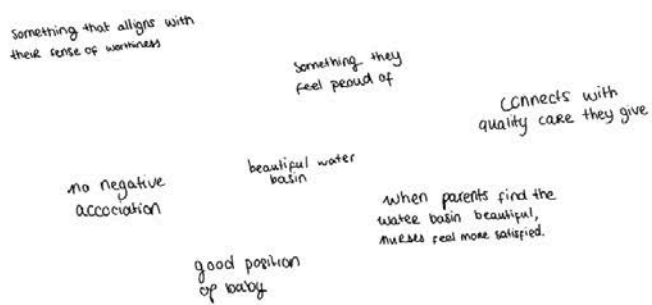 something that alligns with
their sense of worthiness
something they
feel proud of
connects with
quality care they give
beautiful water
basin
no negative
accociation
when parents find the
water basin beautiful,
nurses feel more satisfied.
good position
of baby